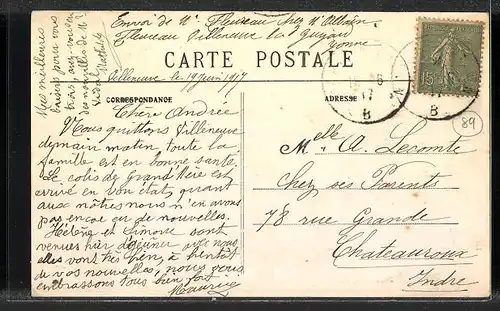 Envoi de Mr Fluneau chez Mr
Fluneau Villeneuve
Yonne
CARTE POSTALE
Villeneuve le 19 Juin 1917
Mes meilleures
pour vous
tous
des nouvelles de Mr
CORRESPONDANCE
ADRESSE
Chère Andrée
Nous quittons Villeneuve
demain matin, toute la
famille est en bonne santé.
Le colis de Grand'Mère est
arrivé en bon état, quant
aux nôtres nous n'en avons
pas encore eu de nouvelles.
Hélène et Simone sont
venues hier déjeuner avec nous
elles vont très bien, à bientôt
de vos nouvelles, nous vous
embrassons tous bien fort
Maurice
Melle A. Lecomte
Chez ses Parents
78 rue Grande
Chateauroux
Indre
15
6
17
B
89